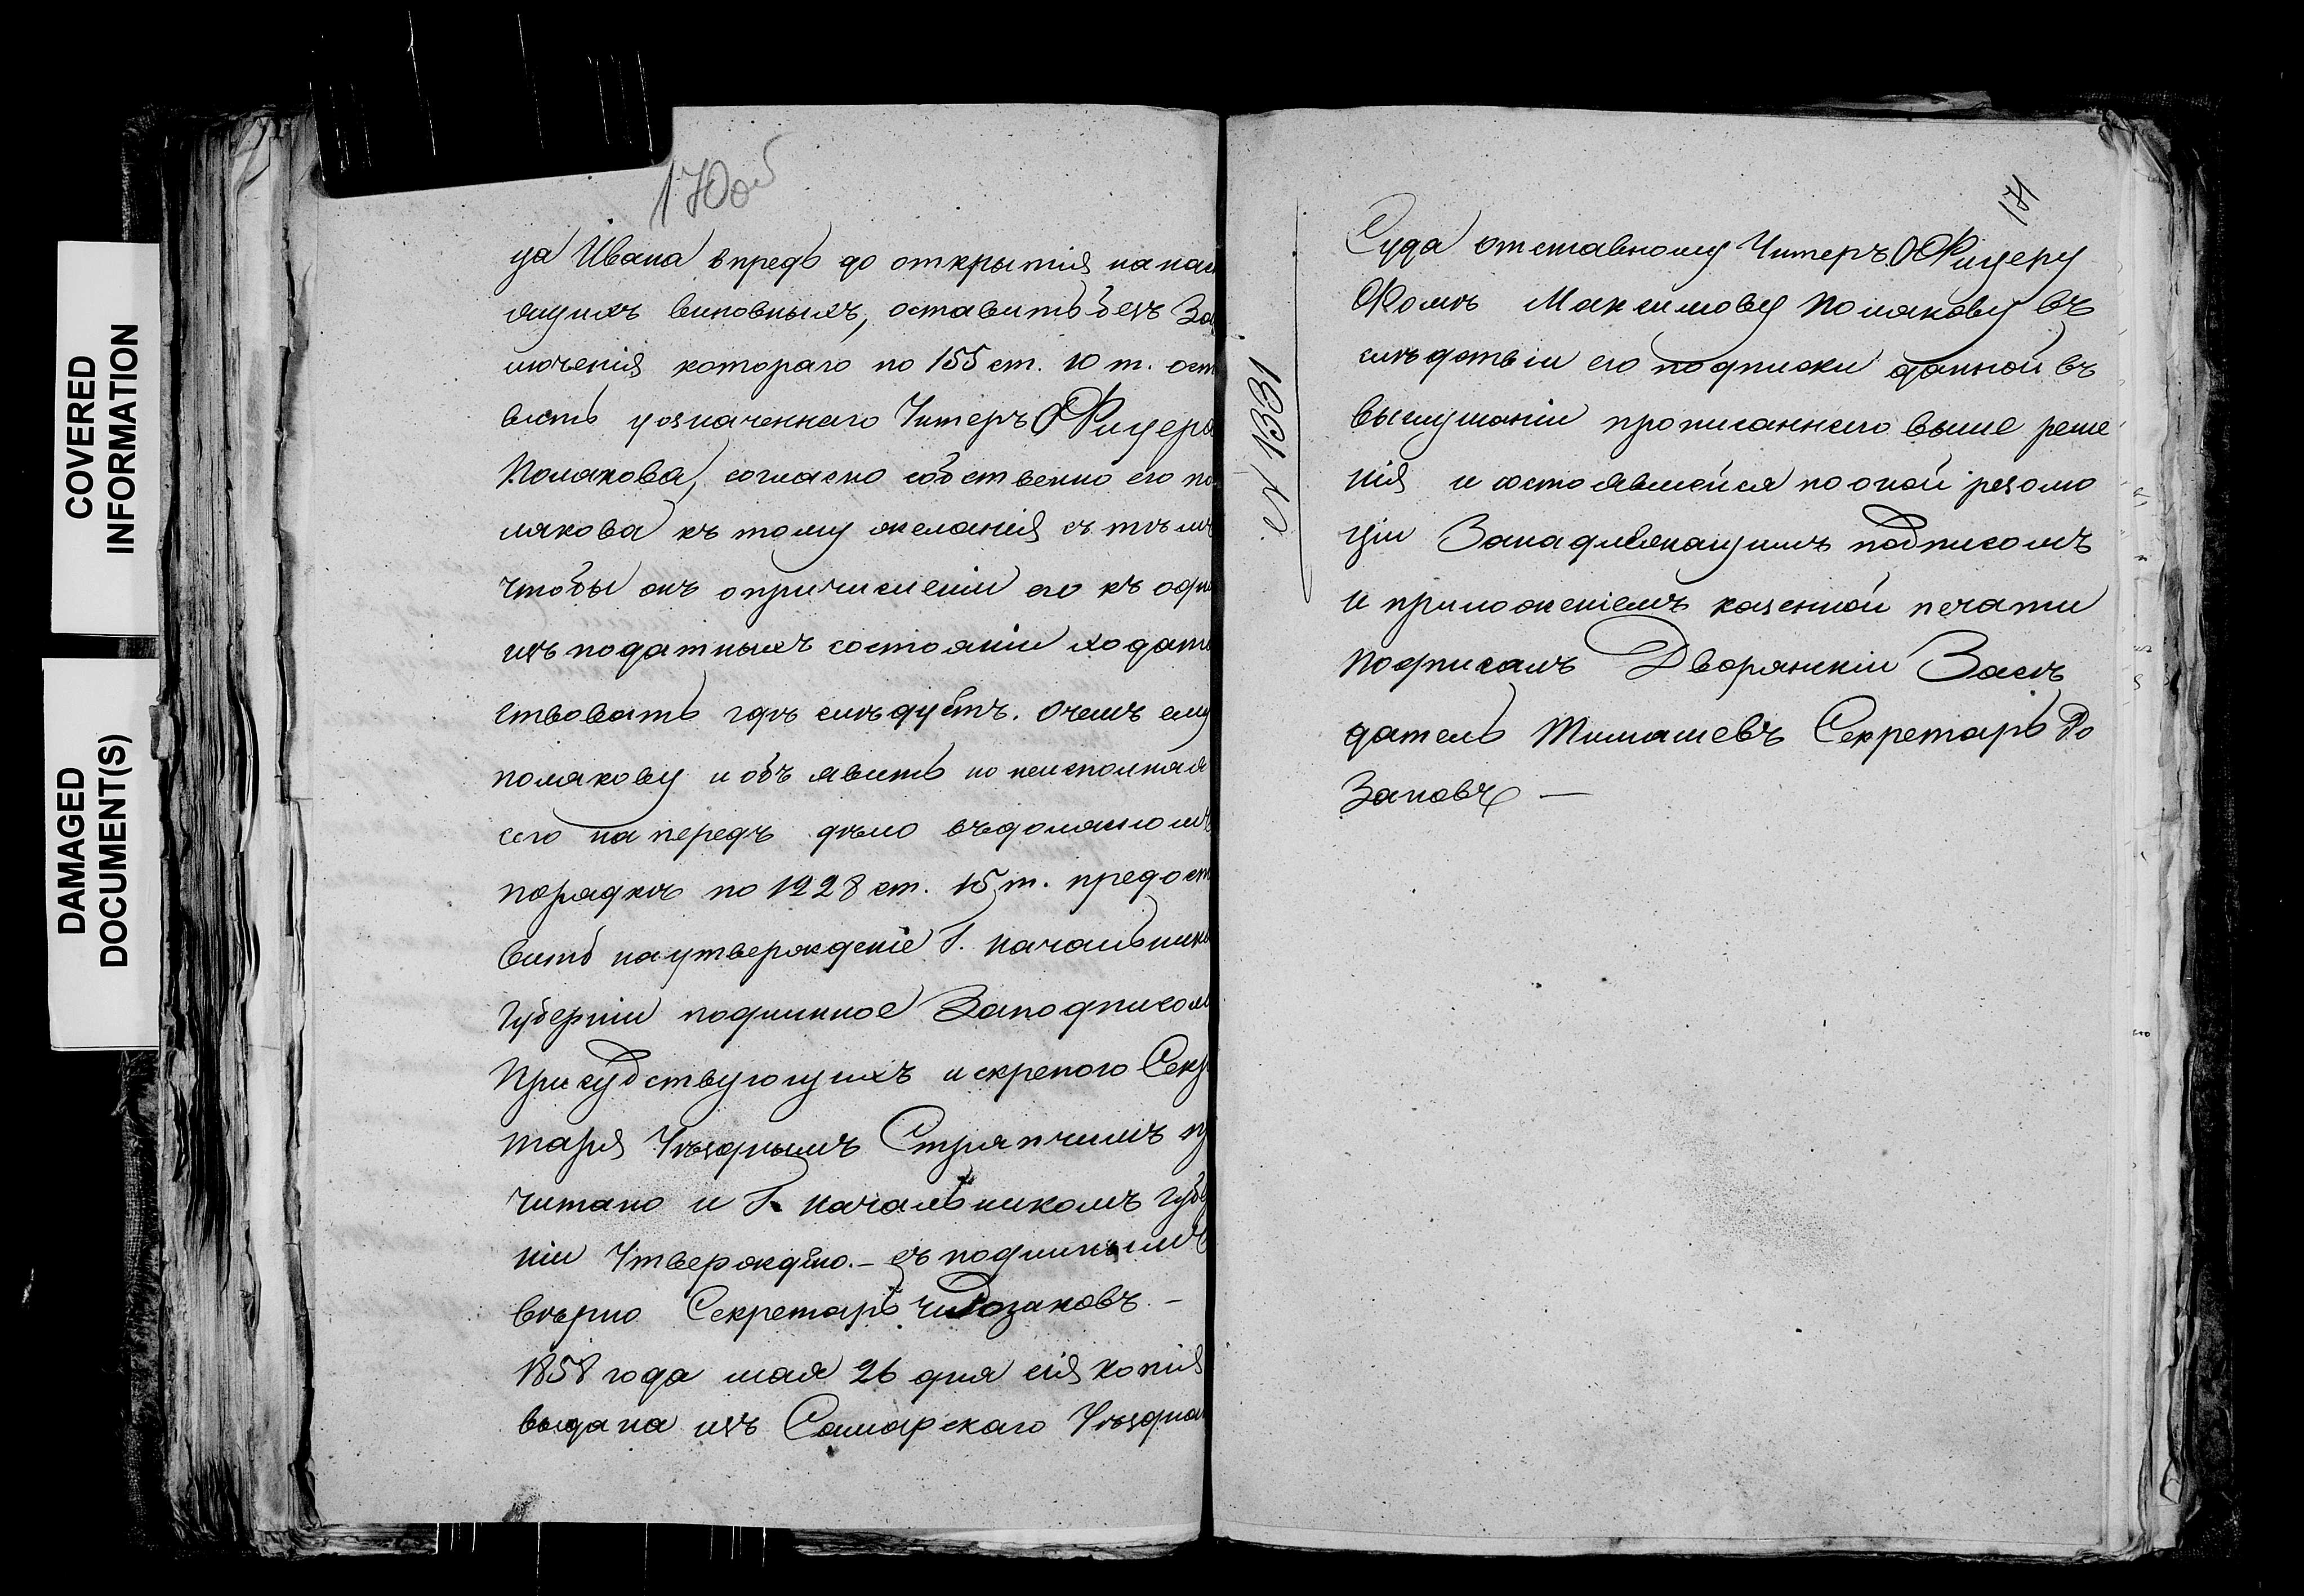 COVERED
INFORMATION
DAMAGED
DOCUMENT(S)
170об
ца Ивана впредь до открытія на
виновныхъ, оставить безъ За
лючения котораго по 155 ст. 10 т. ост
вить уозначеннаго Унтеръ Офицера
Полякова, согласно собственно его по
лякова къ тому желанія съ тѣмъ
чтобы онъ опричисленіи его къ одно
изъ податныхъ состояніи ходати
ствовать гдѣ слѣдуетъ. Очемъ ему
полякову и объявить но неисполняя
сего на передъ дѣло
порядкѣ по 1228 ст. 15 т. предост
вить на утвержденіе Г. начальника
Губерніи подлинное Заподписом
Присудствующихъ искрепою Секр
таря Уѣзднымъ Стряпчимъ пр
читано и Г. начальникомъ губе
ніи Утверждено. – съ подлиннымъ
вѣрно Секретарь Розановъ. –
1858 года мая 26 дня сія копія
выдана изъ Самарскаго Уѣзднаг
171
№ 1331
Суда отставному Унтеръ Офицеру
Фомѣ Максимову Полякову въ
слѣдствіи его подписки данной въ
выслушаніи прописаннего выше реше
нія и состоявшейся по оной резолю
ціи Занадлежащимъ подписомъ
и приложеніемъ казенной печати
подписалъ Дворянскіи Засѣ
датель Тимашевъ Секретарь Ро
Зановъ –